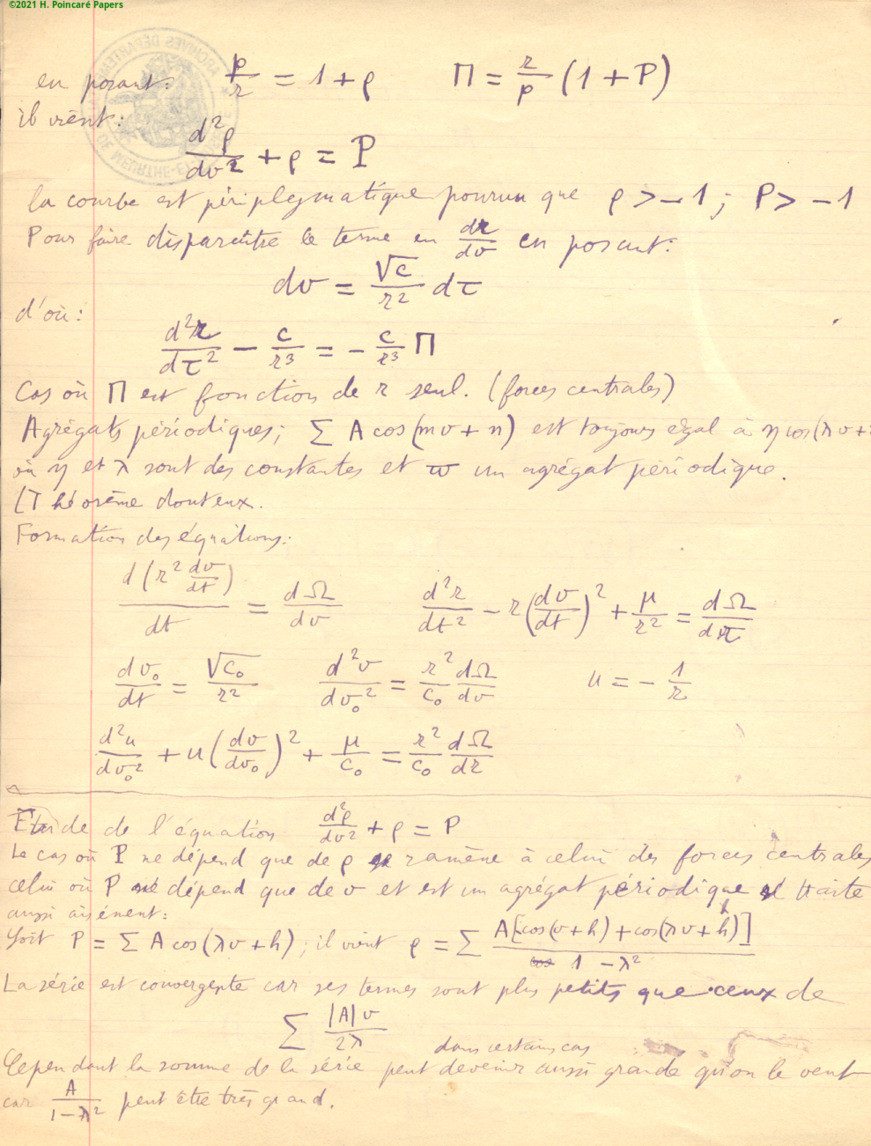 ©2021 H. Poincaré Papers
en posant: p/r = 1 + ρ    Π = r/p (1 + P)
il vient:
d²ρ/dv² + ρ = P
la courbe est périplegmatique pourvu que ρ > -1 ; P > -1
Pour faire disparaître le terme en dr/dv en posant:
dv = √c/r² dτ
d'où:
d²r/dτ² - c/r³ = - c/r³ Π
Cas où Π est fonction de r seul. (forces centrales)
Agrégats périodiques; ∑ A cos(mv + n) est toujours égal à η cos(λv +
où η et λ sont des constantes et ϖ un agrégat périodique.
[Théorème douteux.
Formation des équations:
d(r² dv/dt)/dt = dΩ/dv    d²r/dt² - r(dv/dt)² + μ/r² = dΩ/dr
dv₀/dt = √c₀/r²    d²v/dv₀² = r²/c₀ dΩ/dv    u = - 1/r
d²u/dv₀² + u(dv/dv₀)² + μ/c₀ = r²/c₀ dΩ/dr
Etude de l'équation d²ρ/dv² + ρ = P
Le cas où P ne dépend que de ρ se ramène à celui des forces centrales
celui où P ne dépend que de v et est un agrégat périodique se traite
aussi aisément:
Soit P = ∑ A cos(λv + h); il vient ρ = ∑ A[cos(v + h) + cos(λv + h)]/1 - λ²
La série est convergente car ses termes sont plus petits que ceux de
∑ |A|v/2λ
dans certains cas
Cependant la somme de la série peut devenir aussi grande qu'on le veut
car A/1-λ² peut être très grand.